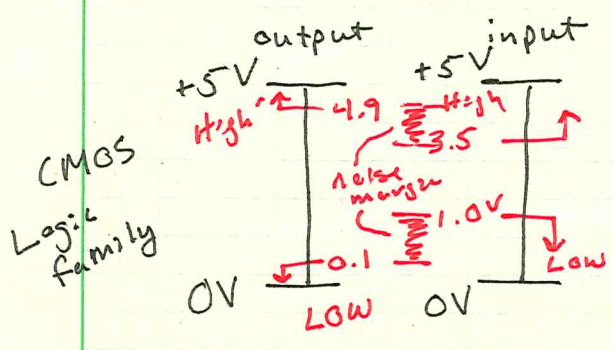 output
input
+5V
+5V
High
4.9
High
3.5
CMOS
Logic
family
noise
margin
1.0V
0.1
LOW
0V
LOW
0V